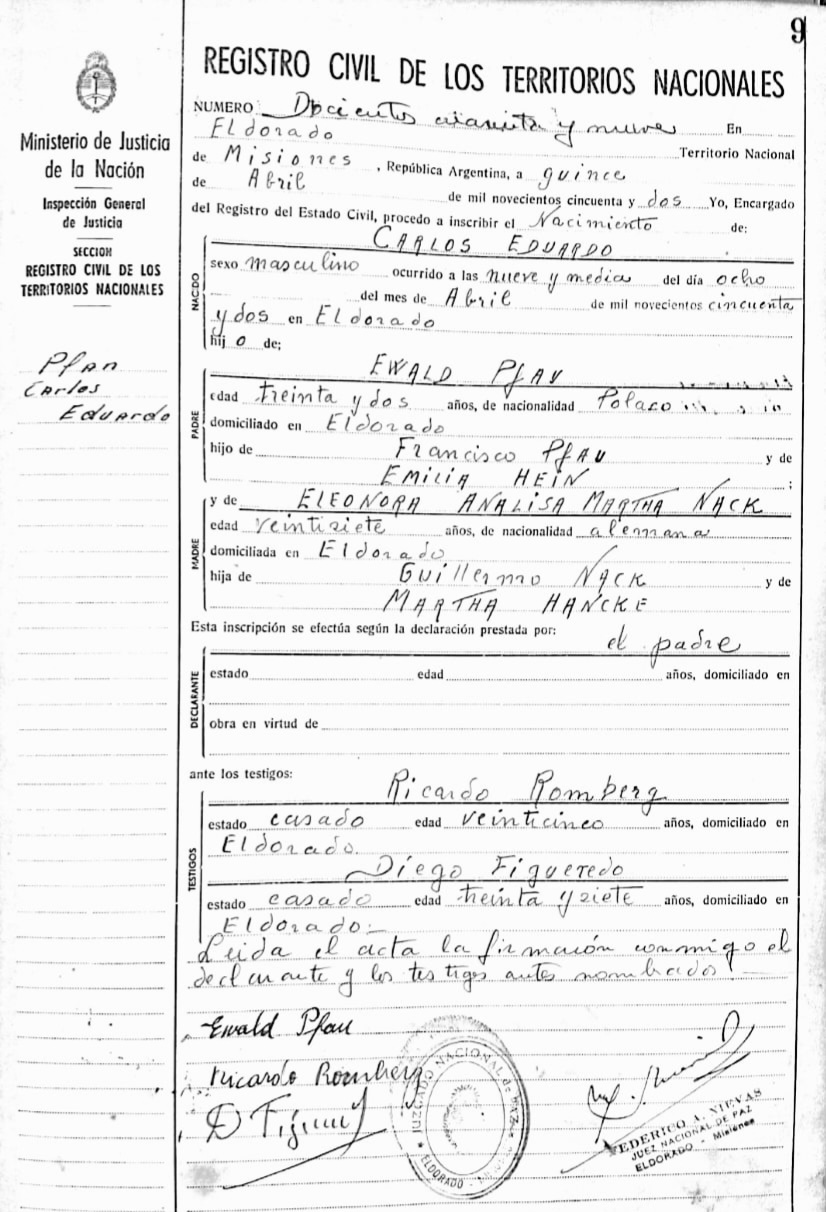 9
REGISTRO CIVIL DE LOS TERRITORIOS NACIONALES
Ministerio de Justicia
de la Nación
Inspección General
de Justicia
SECCION
REGISTRO CIVIL DE LOS
TERRITORIOS NACIONALES
Pfau
Carlos
Eduardo
NUMERO Docientos cuarenta y nueve En
Eldorado Territorio Nacional
de Misiones, República Argentina, a quince
de Abril de mil novecientos cincuenta y dos Yo, Encargado
del Registro del Estado Civil, procedo a inscribir el Nacimiento de:
NACIDO
CARLOS EDUARDO
sexo masculino ocurrido a las nueve y media del día ocho
del mes de Abril de mil novecientos cincuenta
y dos en Eldorado
hij o de;
PADRE
EWALD PfAU
edad treinta y dos años, de nacionalidad Polaco
domiciliado en Eldorado
hijo de Francisco PfAU y de
EMILIA HEIN ;
MADRE
y de ELEONORA ANALISA MARTHA NACK
edad veintisiete años, de nacionalidad alemana
domiciliada en Eldorado
hija de Guillermo NACK y de
MARTHA HANCKE
Esta inscripción se efectúa según la declaración prestada por: el padre
DECLARANTE
estado edad años, domiciliado en
obra en virtud de
ante los testigos:
TESTIGOS
Ricardo Romberg
estado casado edad veinticinco años, domiciliado en
Eldorado
Diego Figueredo
estado casado edad treinta y siete años, domiciliado en
Eldorado.-
Leida el acta la firmaron conmigo el
declarante y los testigos antes nombrados.-
Ewald Pfau
Ricardo Romberg
JUZGADO NACIONAL de PAZ
ELDORADO
FEDERICO A. NIEVAS
JUEZ NACIONAL DE PAZ
ELDORADO - Misiones